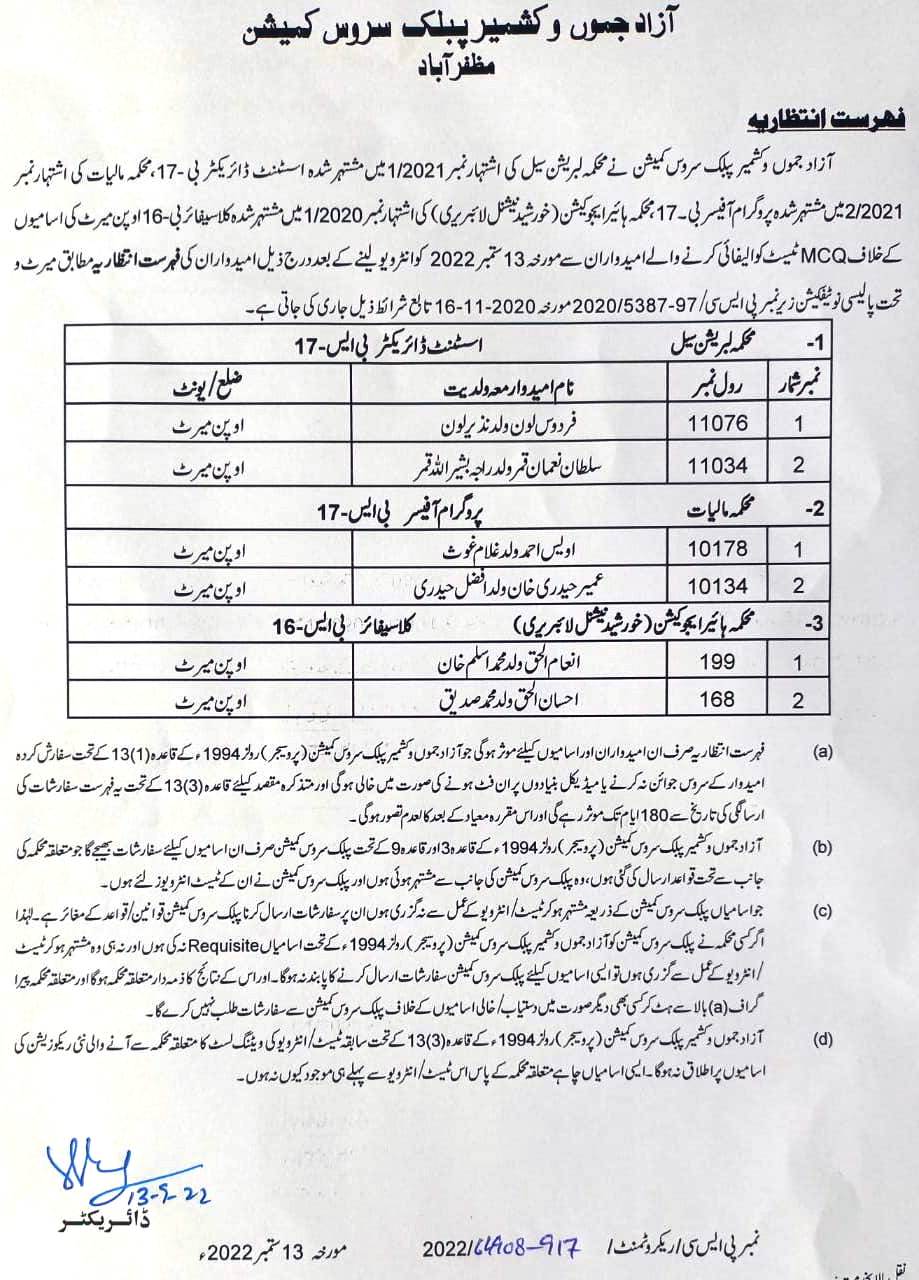 آزاد جموں و کشمیر پبلک سروس کمیشن
مظفرآباد
فہرست انتظاریہ
آزاد جموں و کشمیر پبلک سروس کمیشن نے محکمہ لبریشن سیل کی اشتہار نمبر 1/2021 میں مشتہر شدہ اسسٹنٹ ڈائریکٹر بی -17، محکمہ مالیات کی اشتہار نمبر
2/2021 میں مشتہر شدہ پروگرام آفیسر بی۔17، محکمہ ہائیر ایجوکیشن (خورشید نیشنل لائبریری) کی اشتہار نمبر 1/2020 میں مشتہر شدہ کلاسیفائر بی-16 اوپن میرٹ کی اسامیوں
کے خلاف MCQ ٹیسٹ کوالیفائی کرنے والے امیدواران سے مورخہ 13 ستمبر 2022 کو انٹرویو لینے کے بعد درج ذیل امیدواران کی فہرست انتظاریہ مطابق میرٹ و
تحت پالیسی نوٹیفکیشن زیر نمبر پی ایس سی/97-5387/2020 مورخہ 2020-11-16 تابع شرائط ذیل جاری کی جاتی ہے۔
1- محکمہ لبریشن سیل اسسٹنٹ ڈائریکٹر بی ایس-17
نمبر شمار رول نمبر نام امیدوار معہ ولدیت ضلع/یونٹ
1 11076 فردوس لون ولد نذیر لون اوپن میرٹ
2 11034 سلطان نعمان قمر ولد راجہ بشیر اللہ قمر اوپن میرٹ
2- محکمہ مالیات پروگرام آفیسر بی ایس-17
1 10178 اویس احمد ولد غلام غوث اوپن میرٹ
2 10134 عمیر حیدری خان ولد افضل حیدری اوپن میرٹ
3- محکمہ ہائیر ایجوکیشن (خورشید نیشنل لائبریری) کلاسیفائر بی ایس-16
1 199 انعام الحق ولد محمد اسلم خان اوپن میرٹ
2 168 احسان الحق ولد محمد صدیق اوپن میرٹ
(a) فہرست انتظاریہ صرف ان امیدواران اور اسامیوں کیلئے موثر ہوگی جو آزاد جموں و کشمیر پبلک سروس کمیشن (پروسیجر) رولز 1994ء کے قاعدہ (1)13 کے تحت سفارش کردہ
امیدوار کے سروس جوائن نہ کرنے یا میڈیکل بنیادوں پر ان فٹ ہونے کی صورت میں خالی ہوگی اور متذکرہ مقصد کیلئے قاعدہ (3)13 کے تحت یہ فہرست سفارشات کی
ارسالگی کی تاریخ سے 180 ایام تک موثر رہے گی اور اس مقررہ معیاد کے بعد کالعدم تصور ہوگی۔
(b) آزاد جموں و کشمیر پبلک سروس کمیشن (پروسیجر) رولز 1994ء کے قاعدہ 3 اور قاعدہ 9 کے تحت پبلک سروس کمیشن صرف ان اسامیوں کیلئے سفارشات بھیجے گا جو متعلقہ محکمہ کی
جانب سے تحت قواعد ارسال کی گئی ہوں، وہ پبلک سروس کمیشن کی جانب سے مشتہر ہوئی ہوں اور پبلک سروس کمیشن نے ان کے ٹیسٹ انٹرویوز لئے ہوں۔
(c) جو اسامیاں پبلک سروس کمیشن کے ذریعہ مشتہر ہو کر ٹیسٹ/انٹرویو کے عمل سے نہ گزری ہوں ان پر سفارشات ارسال کرنا پبلک سروس کمیشن قوانین/قواعد کے مغائر ہے۔ لہٰذا
اگر کسی محکمہ نے پبلک سروس کمیشن کو آزاد جموں و کشمیر پبلک سروس کمیشن (پروسیجر) رولز 1994ء کے تحت اسامیاں Requisite نہ کی ہوں اور نہ ہی وہ مشتہر ہو کر ٹیسٹ
/انٹرویو کے عمل سے گزری ہوں تو ایسی اسامیوں کیلئے پبلک سروس کمیشن سفارشات ارسال کرنے کا پابند نہ ہوگا۔ اور اس کے نتائج کا ذمہ دار متعلقہ محکمہ ہوگا اور متعلقہ محکمہ پیرا
گراف (a) بالا سے ہٹ کر کسی بھی دیگر صورت میں دستیاب/خالی اسامیوں کے خلاف پبلک سروس کمیشن سے سفارشات طلب نہیں کرے گا۔
(d) آزاد جموں و کشمیر پبلک سروس کمیشن (پروسیجر) رولز 1994ء کے قاعدہ (3)13 کے تحت سابقہ ٹیسٹ/انٹرویو کی ویٹنگ لسٹ کا متعلقہ محکمہ سے آنے والی نئی ریکوزیشن کی
اسامیوں پر اطلاق نہ ہوگا۔ ایسی اسامیاں چاہے متعلقہ محکمہ کے پاس اس ٹیسٹ/انٹرویو سے پہلے ہی موجود کیوں نہ ہوں۔
13-9-22
ڈائریکٹر
نمبر پی ایس سی/ریکروٹمنٹ/ 2022/64908-917 مورخہ 13 ستمبر 2022ء